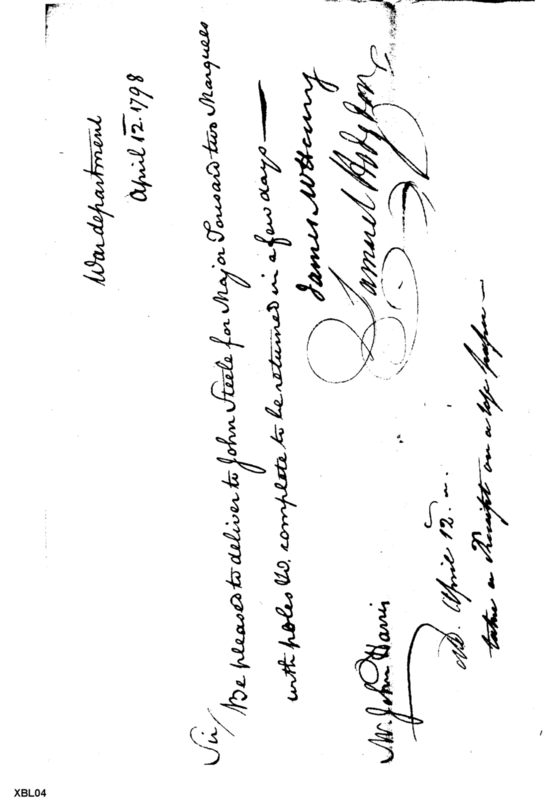 War department
April 12. 1798
Sir/
Be pleased to deliver to John Steele for Major Tousard two Marquees
with poles &c. complete to be returned in a few days —
James McHenry
Samuel Hodgdon
Mr. John Harris
April 12.
a Receipt on a
XBL04